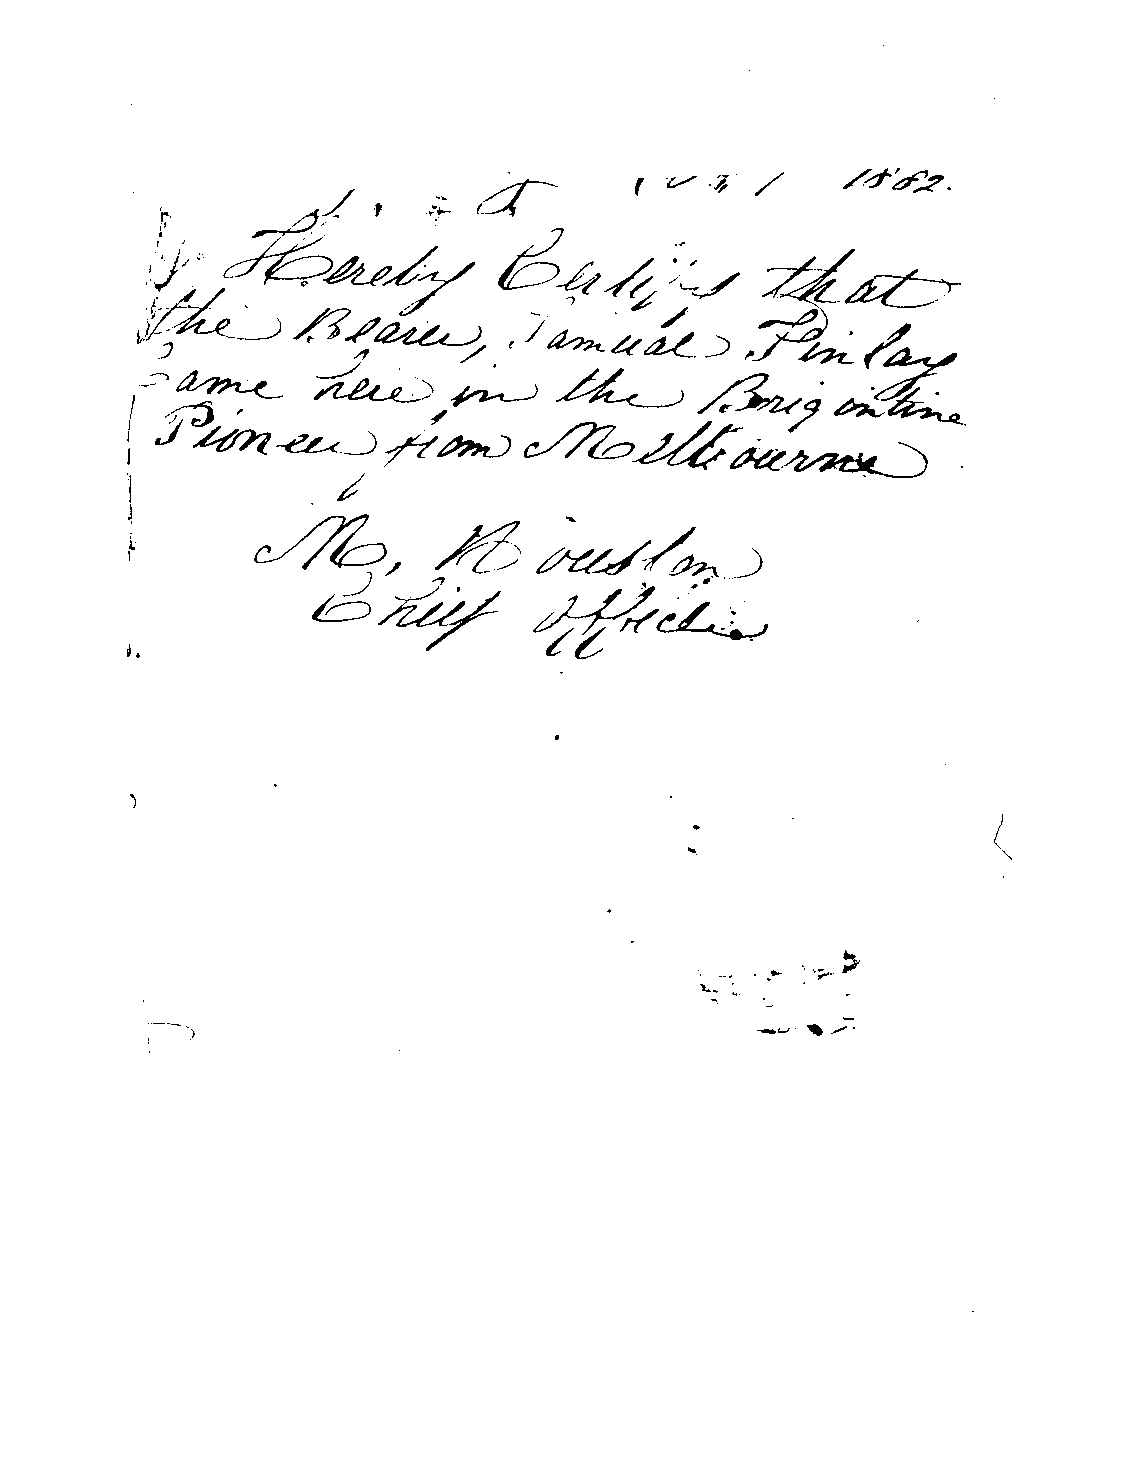 1882.
I Hereby Certify that
the Bearer, Samual Finlay
Came here in the Brigontine
Pioneer from Melbourne
M. Houston
Chief Officer